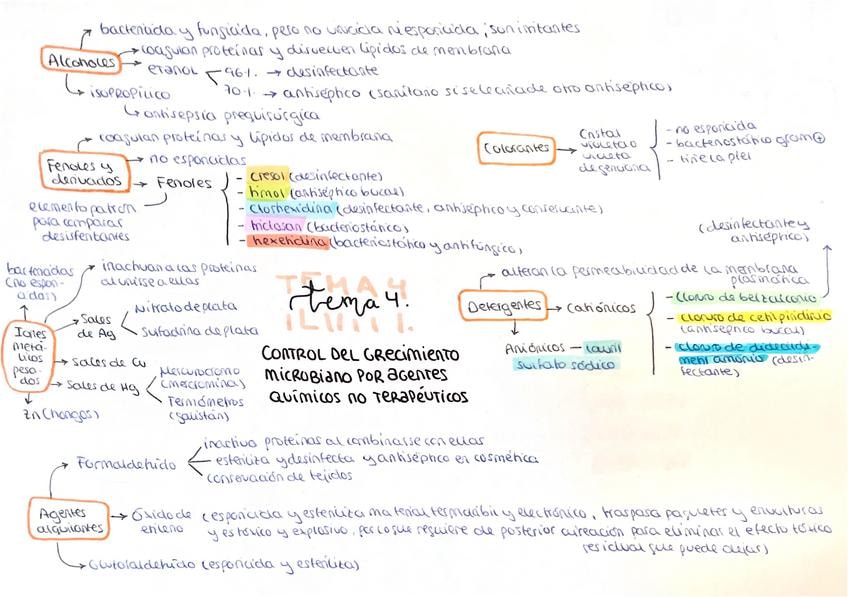 bactericida y fungicida, pero no virucida ni esporicida; son irritantes
Alcoholes
coagulan proteínas y disuelven lípidos de membrana
etanol
96% → desinfectante
70% → antiséptico (sanitario si se le añade otro antiséptico)
isopropílico
antisepsia prequirúrgica
coagulan proteínas y lípidos de membrana
Fenoles y
derivados
no esporicidas
Fenoles
elemento patrón
para comparar
desinfectantes
- cresol (desinfectante)
- timol (antiséptico bucal)
- clorhexidina (desinfectante, antiséptico y conservante)
- triclosan (bacteriostático)
- hexetidina (bacteriostático y antifúngico)
Colorantes
Cristal
violeta o
violeta
de genciana
- no esporicida
- bacteriostático gram +
- tiñe la piel
bactericidas
(no espori-
cidas)
inactivan a las proteínas
al unirse a ellas
Iones
metá-
licos
pesa-
dos
Sales
de Ag
Nitrato de plata
Sulfadicina de plata
Sales de Cu
Sales de Hg
Mercurocromo
(mercromina)
Termómetros
(galistán)
Zn (hongos)
TEMA 4
tema 4.
CONTROL DEL CRECIMIENTO
MICROBIANO POR AGENTES
QUÍMICOS NO TERAPÉUTICOS
(desinfectante y
antiséptico)
alteran la permeabilidad de la membrana
plasmática
Detergentes
catiónicos
- cloruro de benzalconio
- cloruro de cetilpiridinio
(antiséptico bucal)
- cloruro de didecildi-
metil amonio (desin-
fectante)
Aniónicos — lauril
sulfato sódico
Formaldehido
inactiva proteínas al combinarse con ellas
esteriliza y desinfecta y antiséptico en cosmética
conservación de tejidos
Agentes
alquilantes
Óxido de
etileno
(esporicida y esteriliza material termolábil y electrónico, traspasa paquetes y envolturas
y es tóxico y explosivo, por lo que requiere de posterior aireación para eliminar el efecto tóxico
residual que puede dejar)
Glutaraldehído (esporicida y esteriliza)